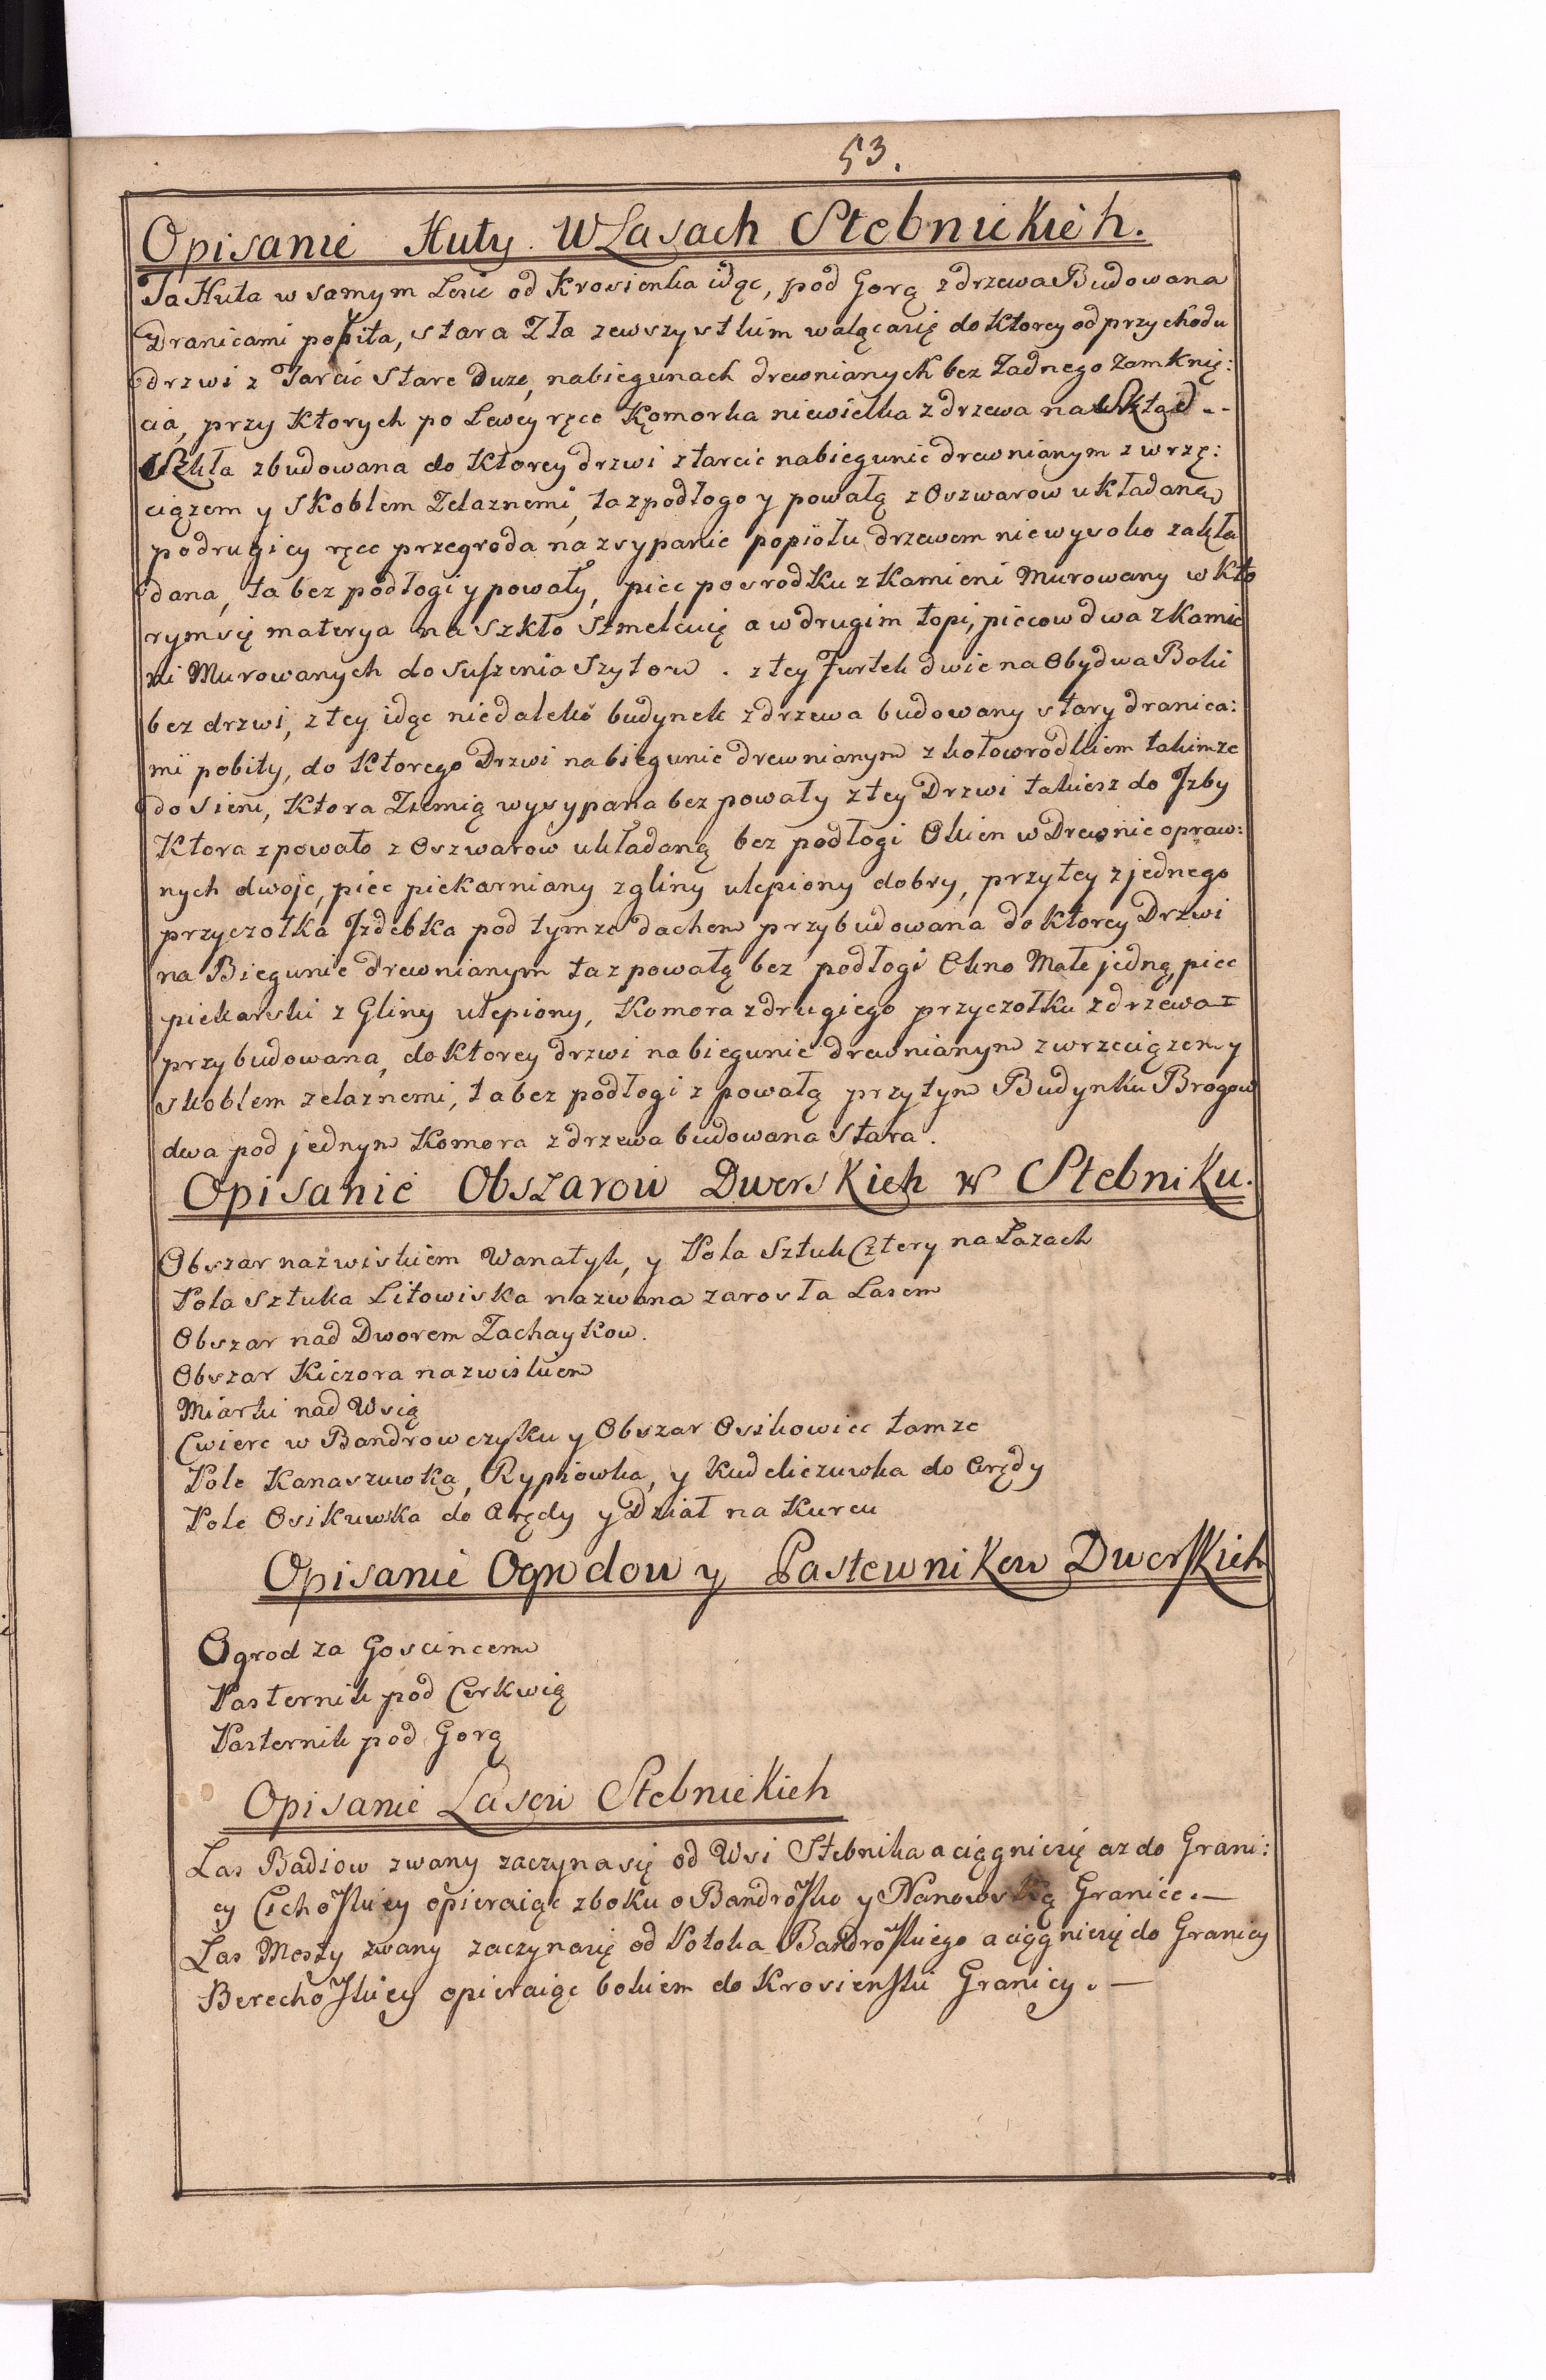 53.
Opisanie Huty. W Lasach Stebnickich.
Ta Huta w samym Lesie od Krosienka idąc, pod Gorą z drzewa Budowana
Dranicami pobita, stara Zła zewszystkim walącasię do Ktorey od przychodu
drzwi z Tarcic Stare Duze, nabiegunach drewnianych bez Zadnego Zamknię:
cia, przy Ktorych po Lewey ręce Komorka niewielka z drzewa na Skład --
Szkła zbudowana do Ktorey drzwi z tarcic nabiegunie drewnianym z wrzę:
ciązem y Skoblem Zelaznemi, ta zpodłogo y powałą z Oszwarow układaną
podrugiey ręce przegroda na zsypanie popiołu drzewem niewysoko zakła
dana, ta bez podłogi y powały, piec posrodku z Kamieni Murowany w Kto
rymsię materya na Szkło Szmelcuię a w drugim topi, piecow dwa z Kamie
ni Murowanych do Suszenia Szytow. z tey Furtek dwie na Obydwa Boki
bez drzwi, z tey idąc niedaleko budynek z drzewa budowany stary dranica:
mi pobity, do Ktorego Drzwi nabiegunie drewnianym z kołowrodkiem takimze
do Sieni, Ktora Ziemią wysypana bez powały z tey Drzwi takiesz do Izby
Ktora z powało z Oszwarow układaną bez podłogi Okien w Drewnie opraw:
nych dwoje, piec piekarniany z gliny ulepiony dobry, przytey z jednego
przyczołka Izdebka pod tymze dachem przybudowana do Ktorey Drzwi
na Biegunie drewnianym ta z powałą bez podłogi Okno Małe jedną, piec
piekarski z Gliny ulepiony, Komora z drugiego przyczołku z drzewa
przybudowana, do Ktorey drzwi nabiegunie drewnianym z wrzeciązem y
skoblem zelaznemi, ta bez podłogi z powałą przytym Budynku Brogow
dwa pod jednym Komora z drzewa budowana Stara.
Opisanie Obszarow Dworskich w Stebniku.
Obszar nazwiskiem Wanatyk, y Pola Sztuk Cztery na Łazach
Pola Sztuka Litowiska nazwana zarosła Lasem
Obszar nad Dworem Zachaykow.
Obszar Kiczora nazwiskiem
Miarki nad Wsią
Cwierc w Bandrowczysku y Obszar Osikowiec tamze
Pole Kanaszuwka, Rypiowka, y Kudeliczuwka do Arędy
Pole Osikuwka do Arędy y Dział na Kurcu
Opisanie Ogrodow y Pastewnikow Dworskich
Ogrod za Goscincem
Pasternik pod Cerkwią
Pasternik pod Gorą
Opisanie Lasow Stebnickich
Las Badiow zwany zaczynasię od Wsi Stebnika a ciągniesię az do Grani:
cy Cichoskiey opieraiąc zboku o Bandrosko y Nanowską Granice. —
Las Mosty zwany zaczynasię od Potoka Bandroskiego a ciągniesię do Granicy
Berechoskiey opieraiąc bokiem do Krosienski Granicy. —